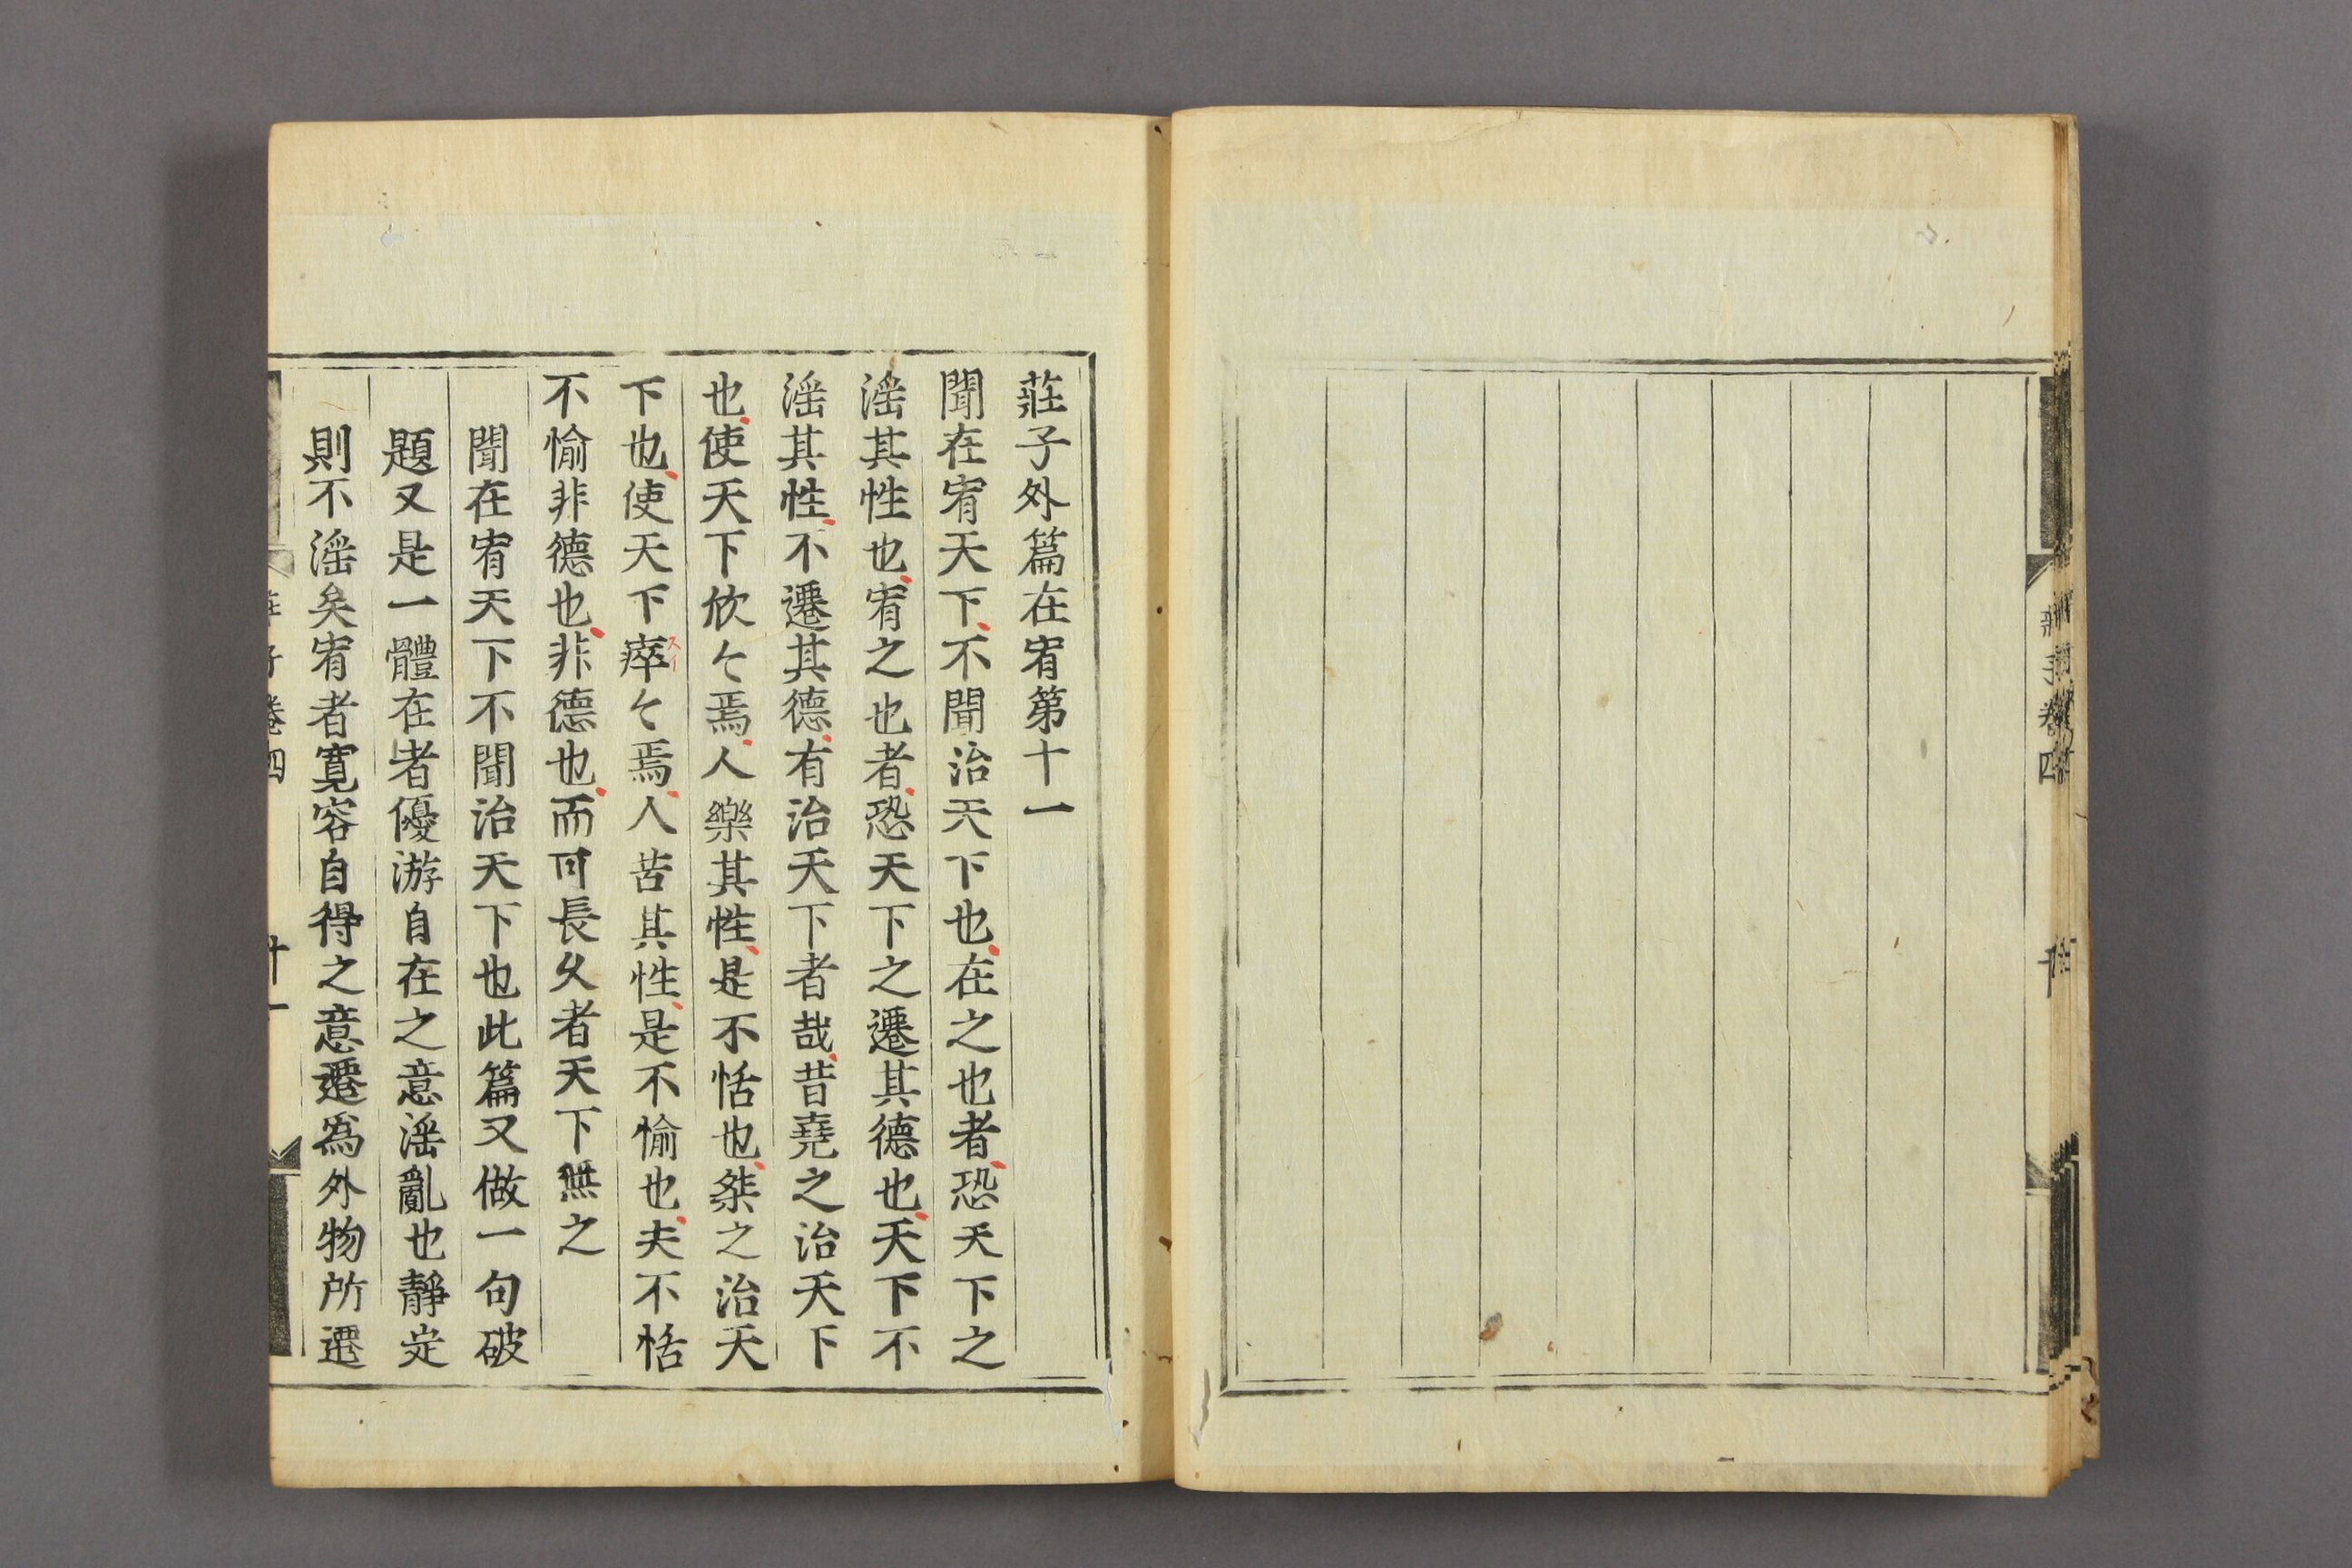 莊子卷四
莊子外篇在宥第十一
聞在宥天下不聞治天下也在之也者恐天下之
淫其性也宥之也者恐天下之遷其德也天下不
淫其性不遷其德有治天下者哉昔堯之治天下
也使天下欣〻焉人樂其性是不恬也桀之治天
下也使天下瘁〻焉人苦其性是不愉也夫不恬
スイ
不愉非德也非德也而可長久者天下無之
聞在宥天下不聞治天下也此篇又做一句破
題又是一體在者優游自在之意淫亂也靜定
則不淫矣宥者寛容自得之意遷爲外物所遷
莊子卷四
十一